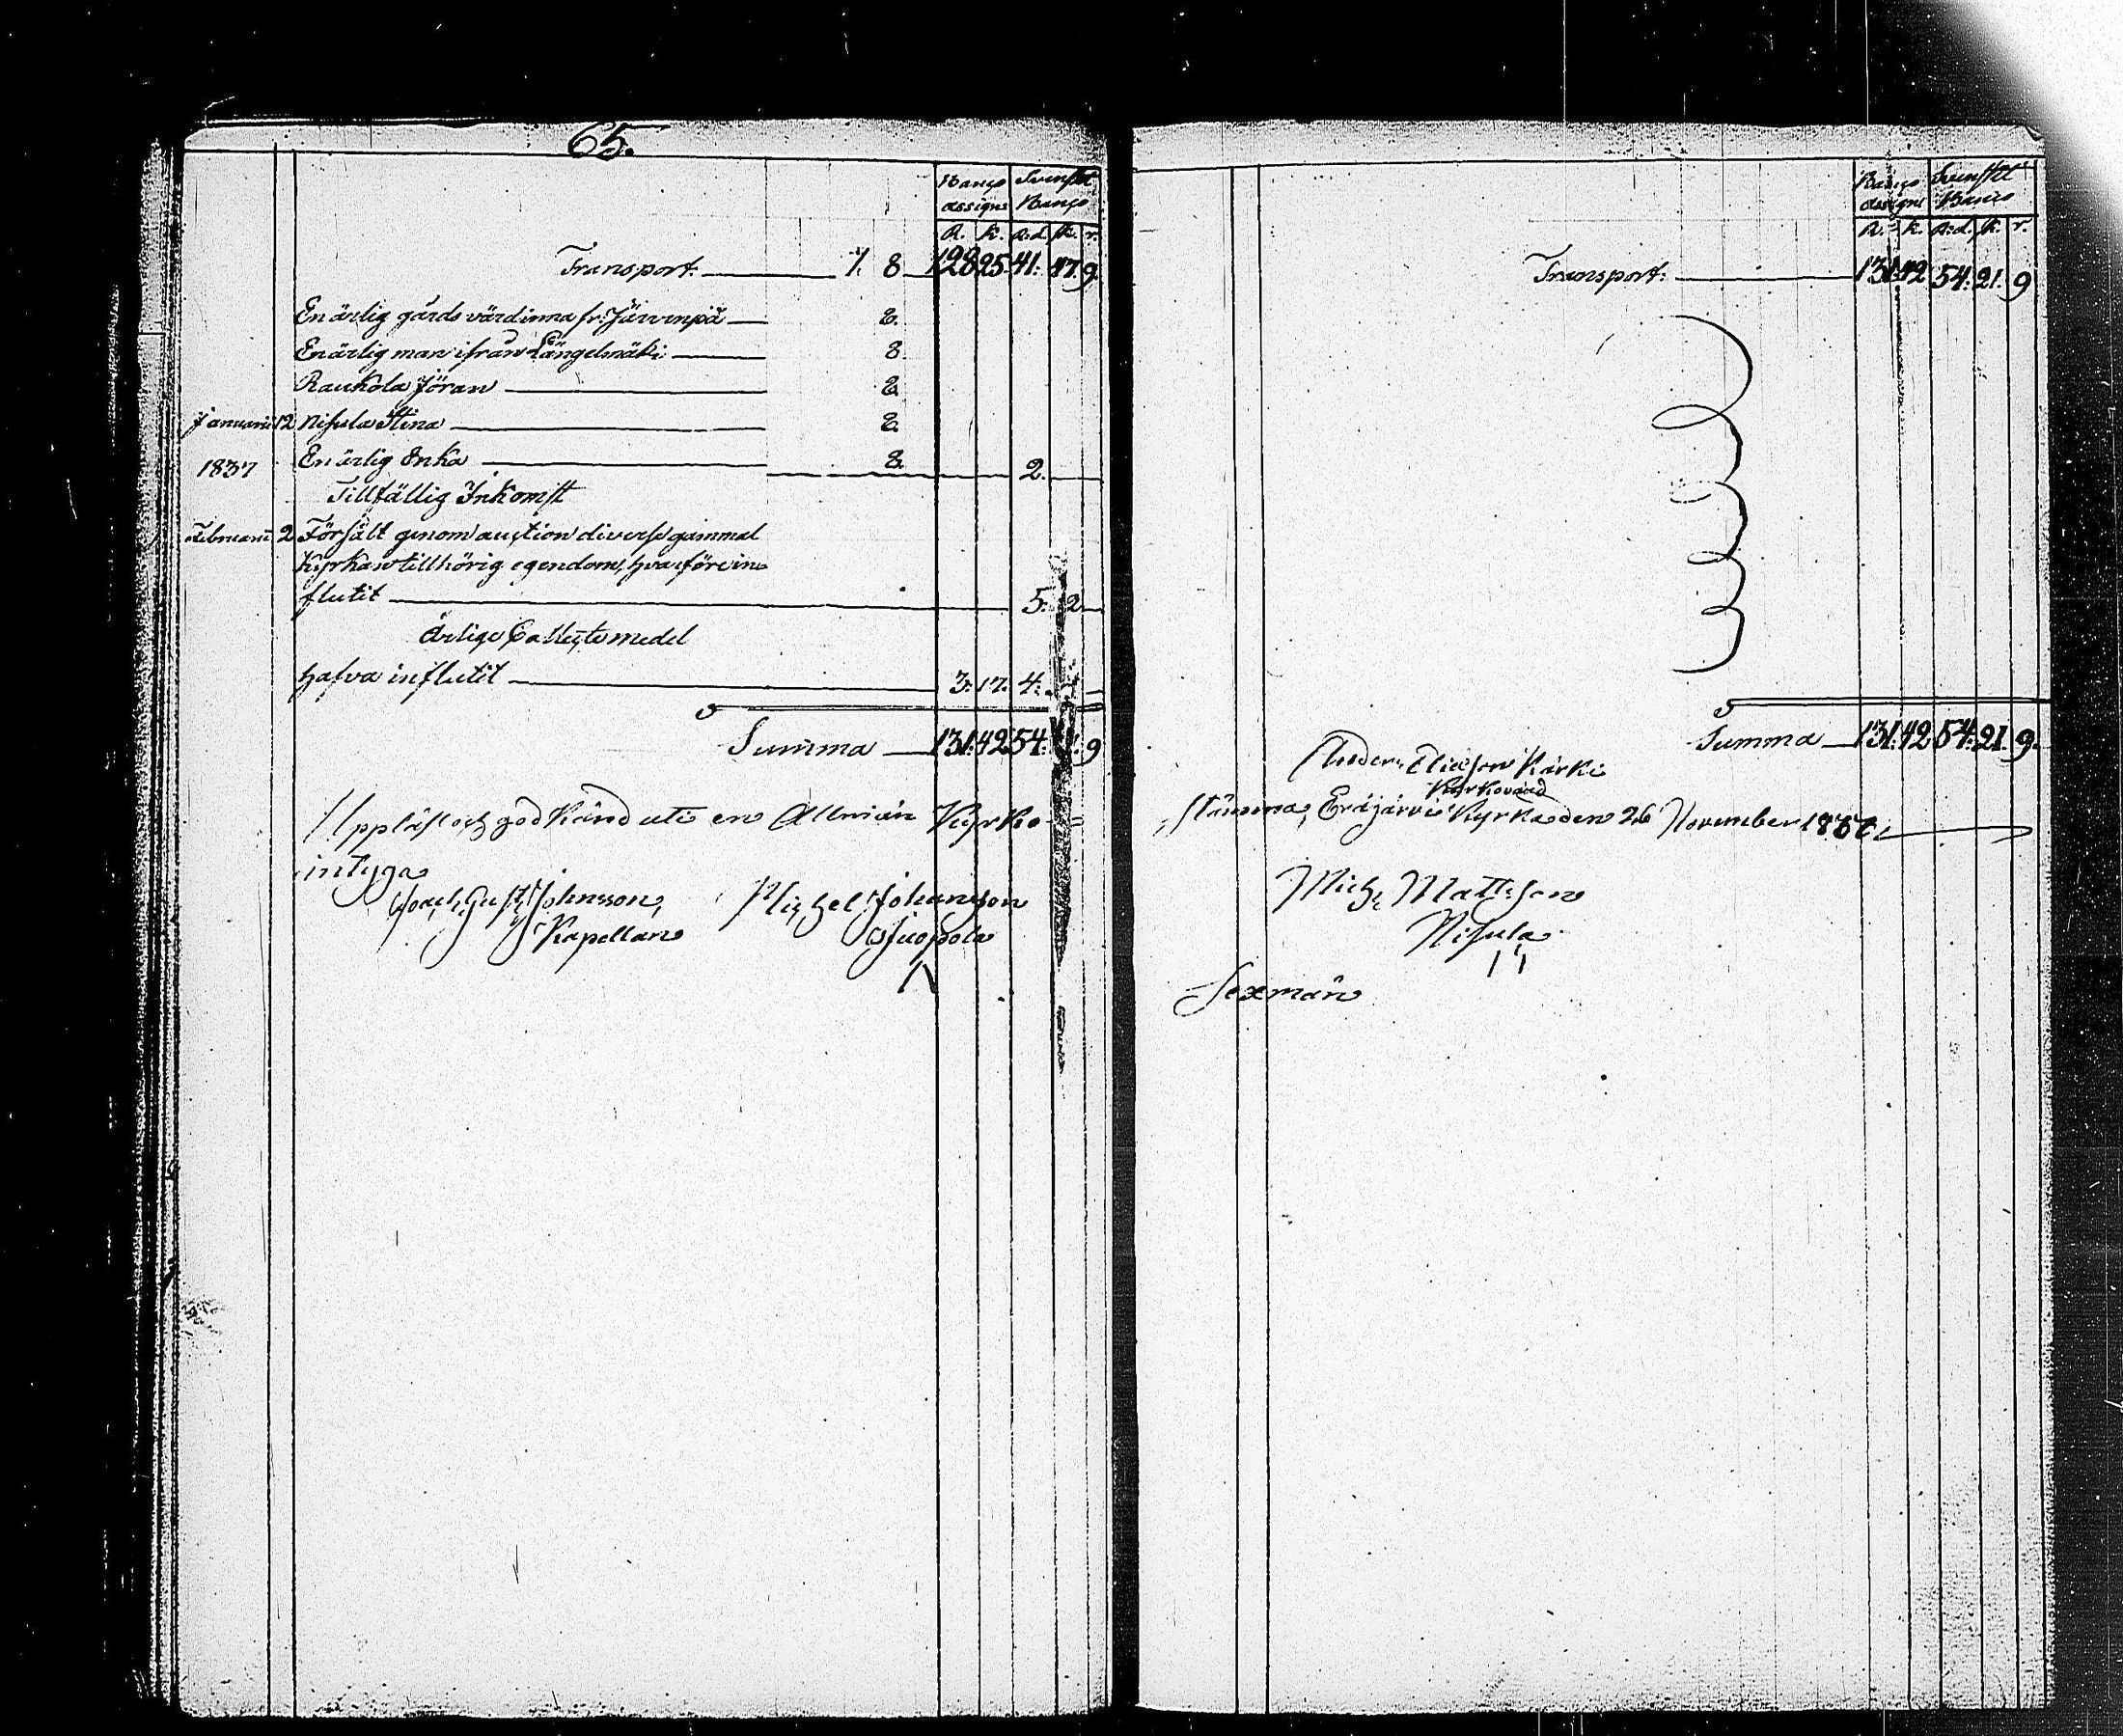 65.
Banco Svenskt
assigns Banco
R. k. R:d. sk. r.
Transport. 1. 8 128 25. 41. 17. 9.
En ärlig gårds värdinna fr: Järvenpä 8.
En ärlig man ifrån Längelmäki 8.
Raukola Jöran 8.
Januarii 12 Nisula Stina 8.
1837 En ärlig Enka 8. 2.
Tillfällig Inkomst
Februarii 2 Försålt genom auction diverse gammal
Kyrkan tillhörig egendom, hvarföre in
flutit 5: 2
Ärlige Collectsmedel
hafva influtit 3: 17. 4:
Summa 131: 42 54: 9
Uppläst och godkänd uti en Allmän Kyrko=
intyga
Joach. Gust. Johnsson, Michel Johansson
Kapellan Suopola
Banco Svenskt
assigns Banco
R. k. R:d. sk. r.
Transport: 131: 42 54: 21. 9
Summa 131: 42 54: 21. 9.
Anders Eliasson Kärki
Kyrkovärd
stämma, Eräjärvi Kyrka den 26 November 1837,
Mich: Mattsson
Nisula
Sexmän